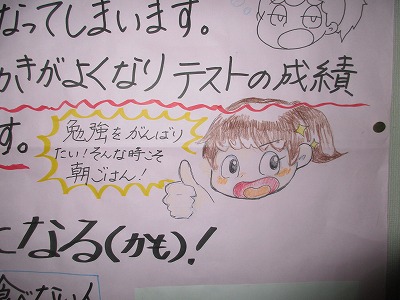 なってしまいます。
きがよくなりテストの成績
す。
勉強をがんばり
たい!そんな時こそ
朝ごはん!
なる(かも)!
食べない人